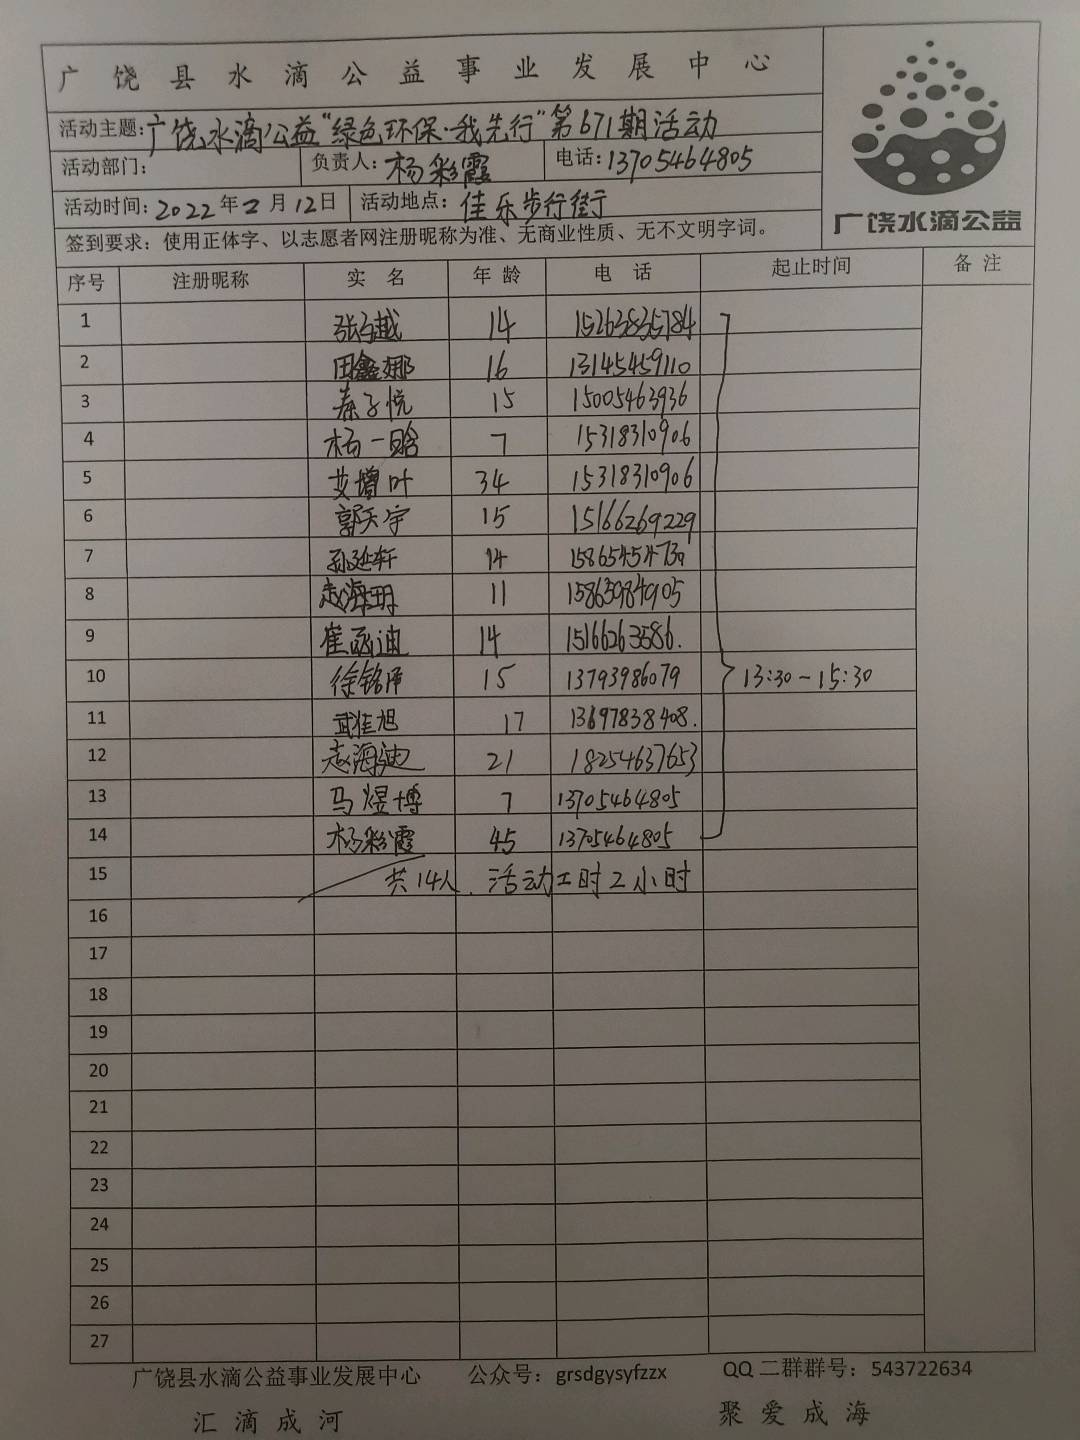 广饶县水滴公益事业发展中心
活动主题：广饶水滴公益"绿色环保·我先行"第671期活动
活动部门： 负责人：杨彩霞 电话：13705464805
活动时间：2022年2月12日 活动地点：佳乐步行街
广饶水滴公益
签到要求：使用正体字、以志愿者网注册昵称为准、无商业性质、无不文明字词。
序号 注册昵称 实名 年龄 电话 起止时间 备注
1 张子越 14 15263835784
2 田鑫娜 16 13145459110
3 秦子悦 15 15005463936
4 杨一晗 7 15318310906
5 艾增叶 34 15318310906
6 郭天宇 15 15166269229
7 孙延轩 14
8 赵海玥 11 15863984905
9 崔函迪 14 15166263586.
10 徐铭泽 15 13793986079 13:30-15:30
11 武佳旭 17 13697838408.
12 赵海迪 21 18254637653
13 马煜博 7 13705464805
14 杨彩霞 45 13705464805
15 共14人、活动工时2小时
16
17
18
19
20
21
22
23
24
25
26
27
广饶县水滴公益事业发展中心 公众号：grsdgysyfzzx QQ二群群号：543722634
汇滴成河 聚爱成海